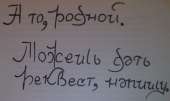 А то, родной.
Можешь дать
реквест, напишу.